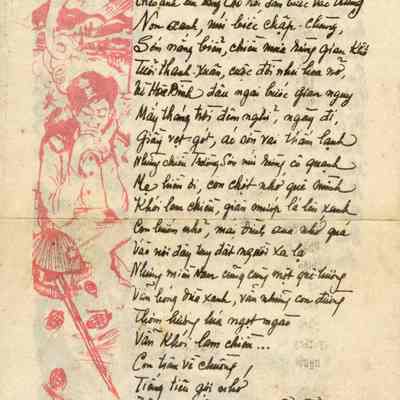 Non xanh, núi biếc chập-chùng,
Sớm nắng biển, chiều mưa rừng gian khổ
Tuổi thanh-Xuân, cuộc đời như hoa nở,
Đi Hòa Bình dâu ngại bước gian nguy
Mấy tháng trời đêm nghỉ, ngày đi,
Giầy vẹt gót, áo sờn vai thấm lạnh
Những chiều Trường Sơn núi rừng cô quạnh
Mẹ hiền ơi, con chợt nhớ quê mình
Khói lam chiều, giàn mướp lá lên xanh
Con bướm nhỏ, mái đình, sao nhớ quá
Vào nơi đây tuy đất người xa lạ
Nhưng miền Nam cũng cùng một quê hương
Vẫn hàng dừa xanh, vẫn những con đường
Thơm hương lúa ngọt ngào
Vẫn khói lam chiều...
Con trâu về chuồng,
Tiếng tiêu gợi nhớ